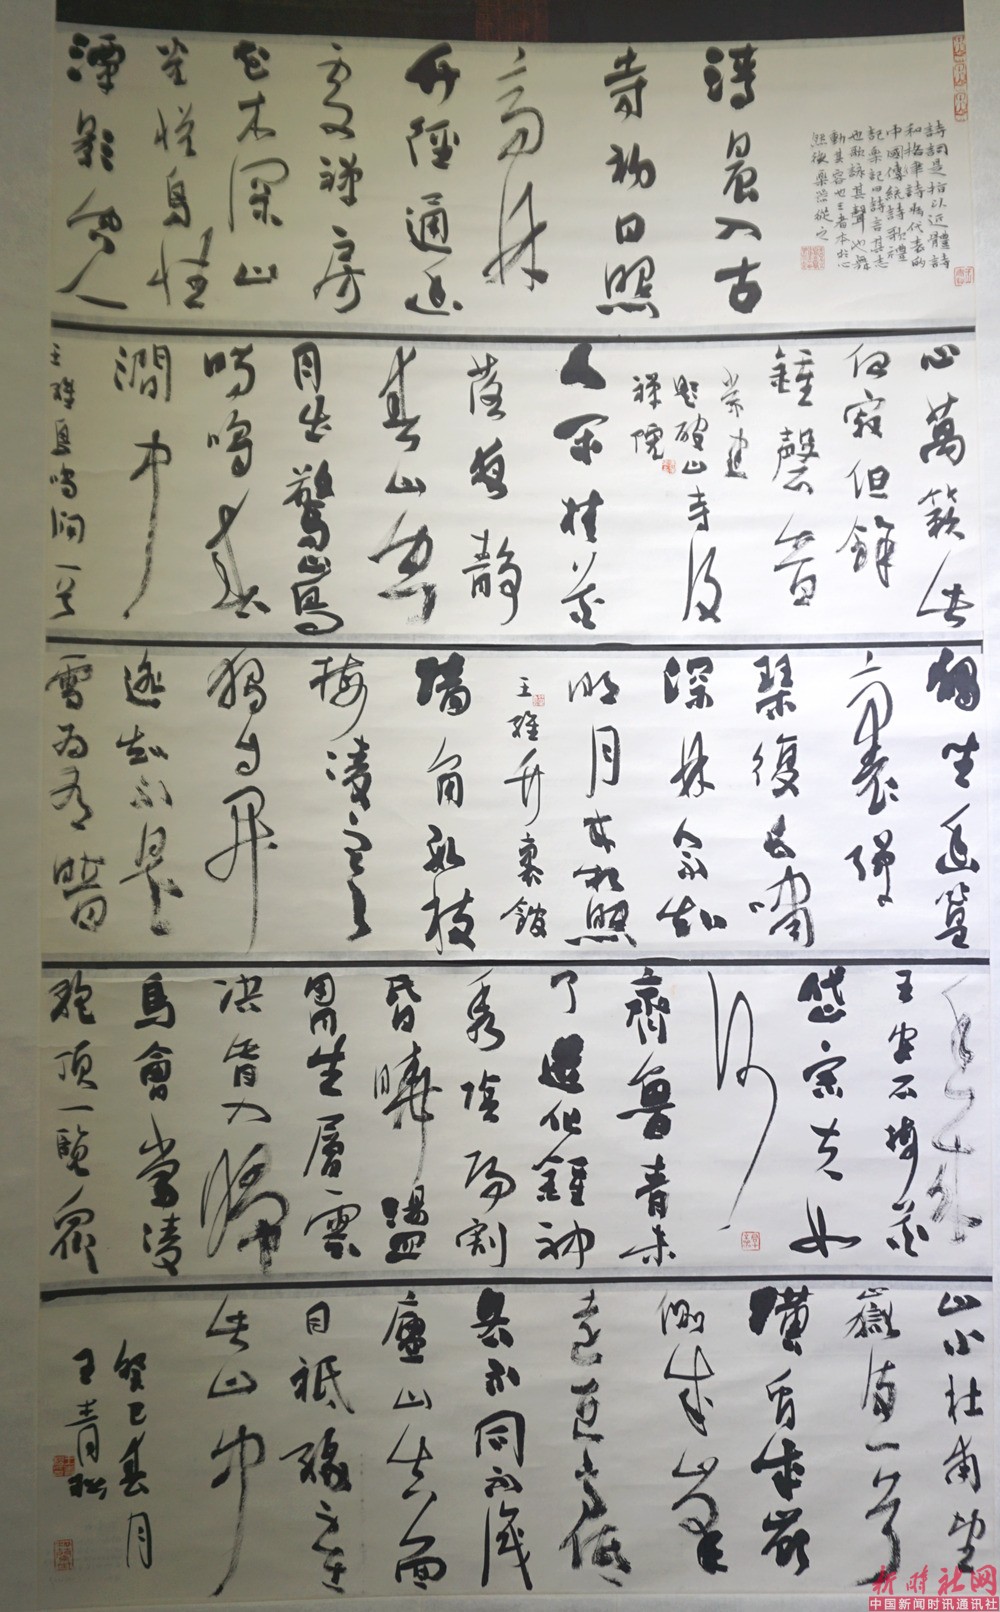 詩詞是指以近體詩
和格律詩為代表的
中國傳統詩歌禮
記樂記曰詩言其志
也歌詠其聲也舞
動其容也三者本於心
然後樂器從之
清晨入古
寺初日照
高林
竹徑通幽
處禪房
花木深山
光悅鳥性
潭影空人
心萬籟此
俱寂但餘
鍾磬音
常建
題破山寺後
禪院
人閒桂花
落夜靜
春山空
月出驚山鳥
時鳴春
澗中
王維鳥鳴澗一首
獨坐幽篁
裏彈
琴復長嘯
深林人不知
明月來相照
王維竹裏館
牆角數枝
梅凌寒
獨自開
遙知不是
雪為有暗
香來
王安石梅花
岱宗夫如
何
齊魯青未
了造化鍾神
秀陰陽割
昏曉盪
胸生層雲
決眥入歸
鳥會當凌
絕頂一覽眾
山小杜甫望
嶽詩一首
橫看成嶺
側成峰
遠近高低
各不同不識
廬山真面
目祗緣身在
此山中
癸巳春月
王青松
新时社网
中国新闻时讯通讯社